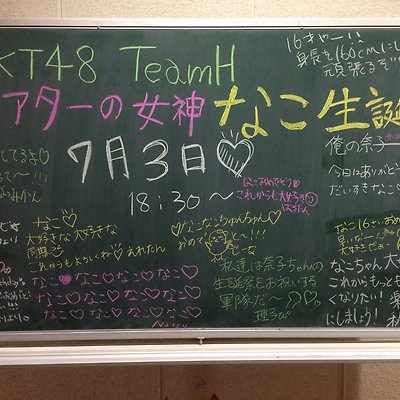 KT48 TeamH
アターの女神 なこ生誕
7月3日♡
18:30〜
16きゃーい
身長を160cmにし
頑張るぞ
俺の奈子
今日はありがと
だいすきなこ
なこおめでとう♡
これからも大好き
はるたん
なこ♡
大好きな大好きな
同期♡
これからもよろしくね♡ えれたん
なこ♡なこ♡なこ♡なこ♡
なこ♡なこ♡なこ♡なこ♡
なこ♡なこ♡なこ♡なこ♡
なこ♡なこ♡なこ♡
Natsu
なこなこちゃんちゃん♡
おめでと〜!!
私達は奈子ちゃんの
生誕祭をお祝いする
軍隊だ〜
なこ16さいおめで
なこちゃん大
これからもっと
くなりたい!
にしましょう!